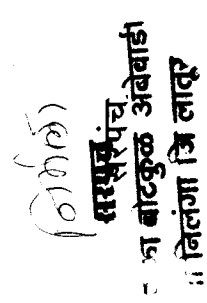 सरपंच
का बोटकुळ अंबेवाडी
निलंगा जि लातूर